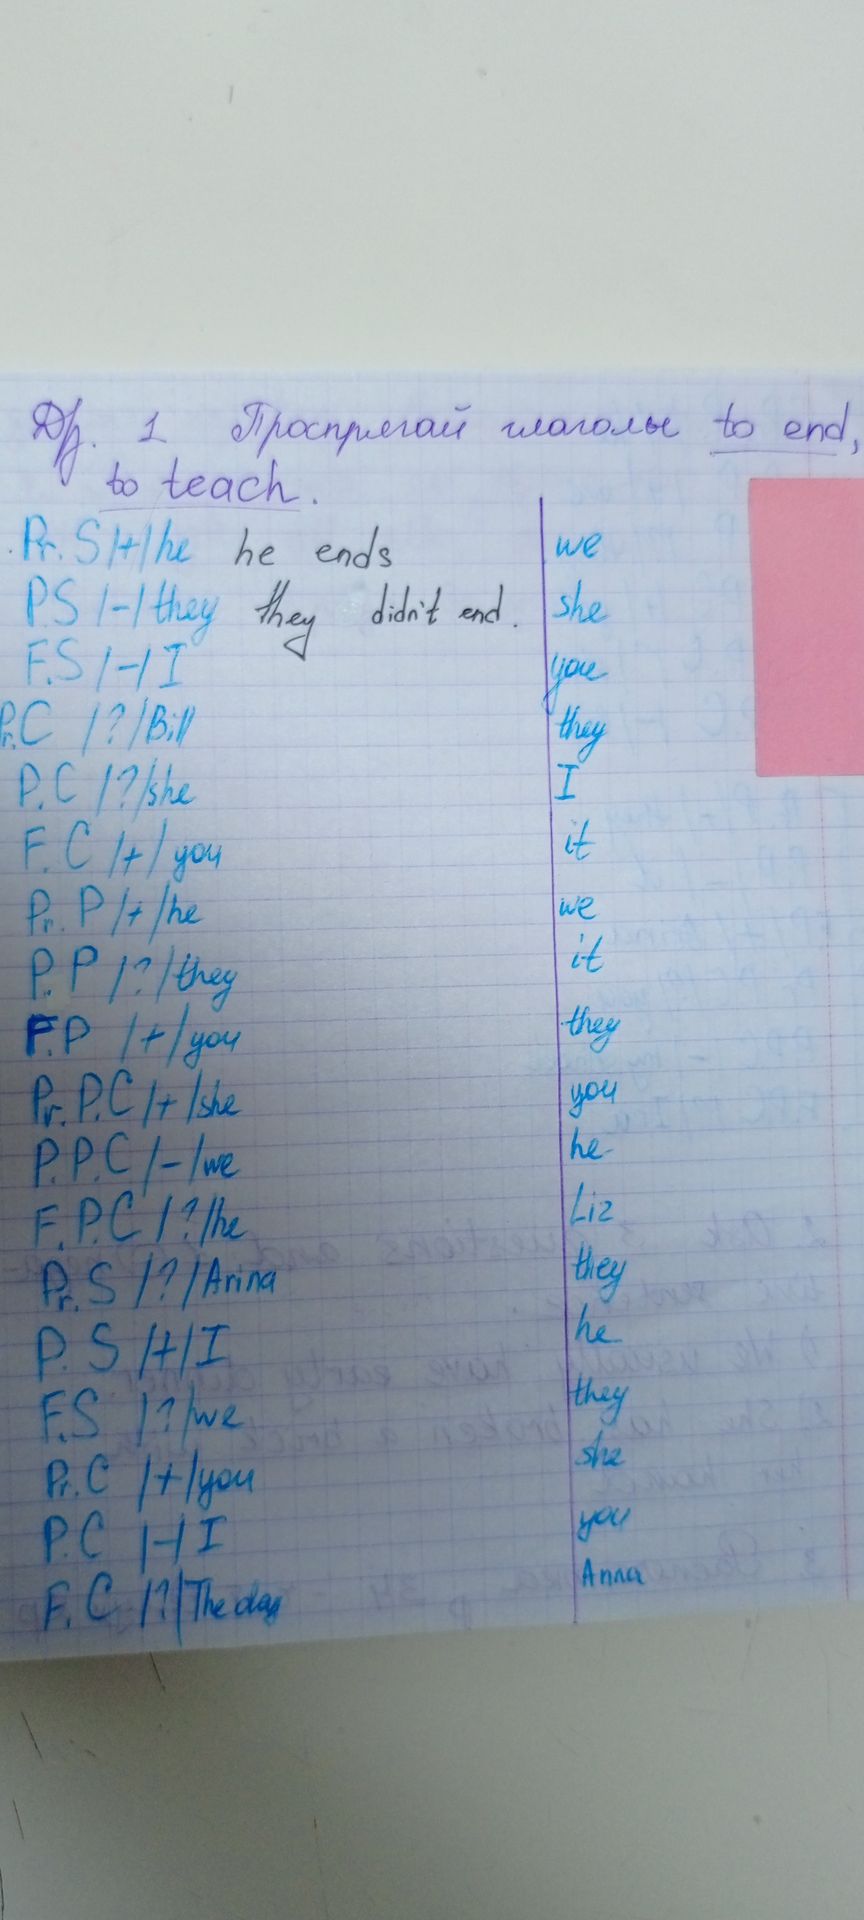 Др. 1 Проспрягай глаголы to end,
to teach.
Pr. S /+/ he he ends we
P.S /-/ they they didn't end. she
F.S /-/ I you
Pr.C /?/ Bill they
P.C /?/ she I
F.C /+/ you it
Pr. P /+/ he we
P.P /?/ they it
F.P /+/ you they
Pr. P.C /+/ she you
P.P.C /-/ we he
F.P.C /?/ he Liz
Pr. S /?/ Arina they
P. S /+/ I he
F.S /?/ we they
Pr. C /+/ you she
P.C /-/ I you
F. C /?/ The dog Anna